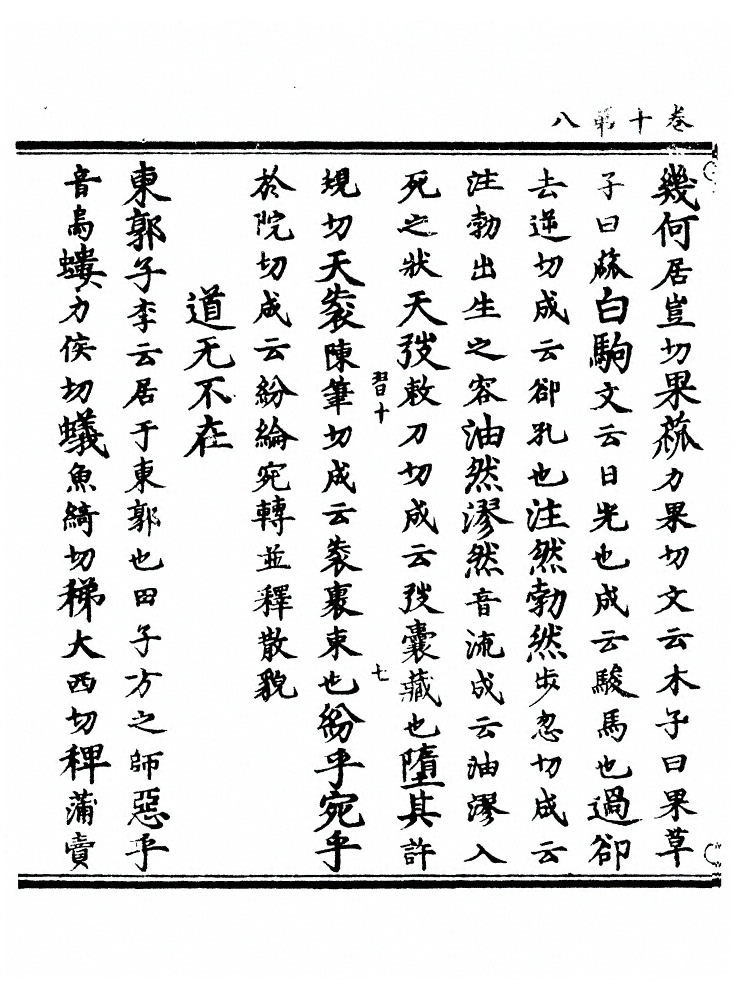 卷十第八
幾何居豈切果蓏力果切文云木子曰果草
子曰蓏白駒文云日光也成云駿馬也過郤
去逆切成云郤孔也注然勃然步忽切成云
注勃出生之容油然漻然音流成云油漻入
死之狀天弢敕刀切成云弢囊藏也墮其許
習十
七
規切天袠陳筆切成云袠裹束也紛乎宛乎
於阮切成云紛綸宛轉並釋散貌
道无不在
東郭子李云居于東郭也田子方之師惡乎
音烏螻力侯切蟻魚綺切稊大西切稗蒲賣